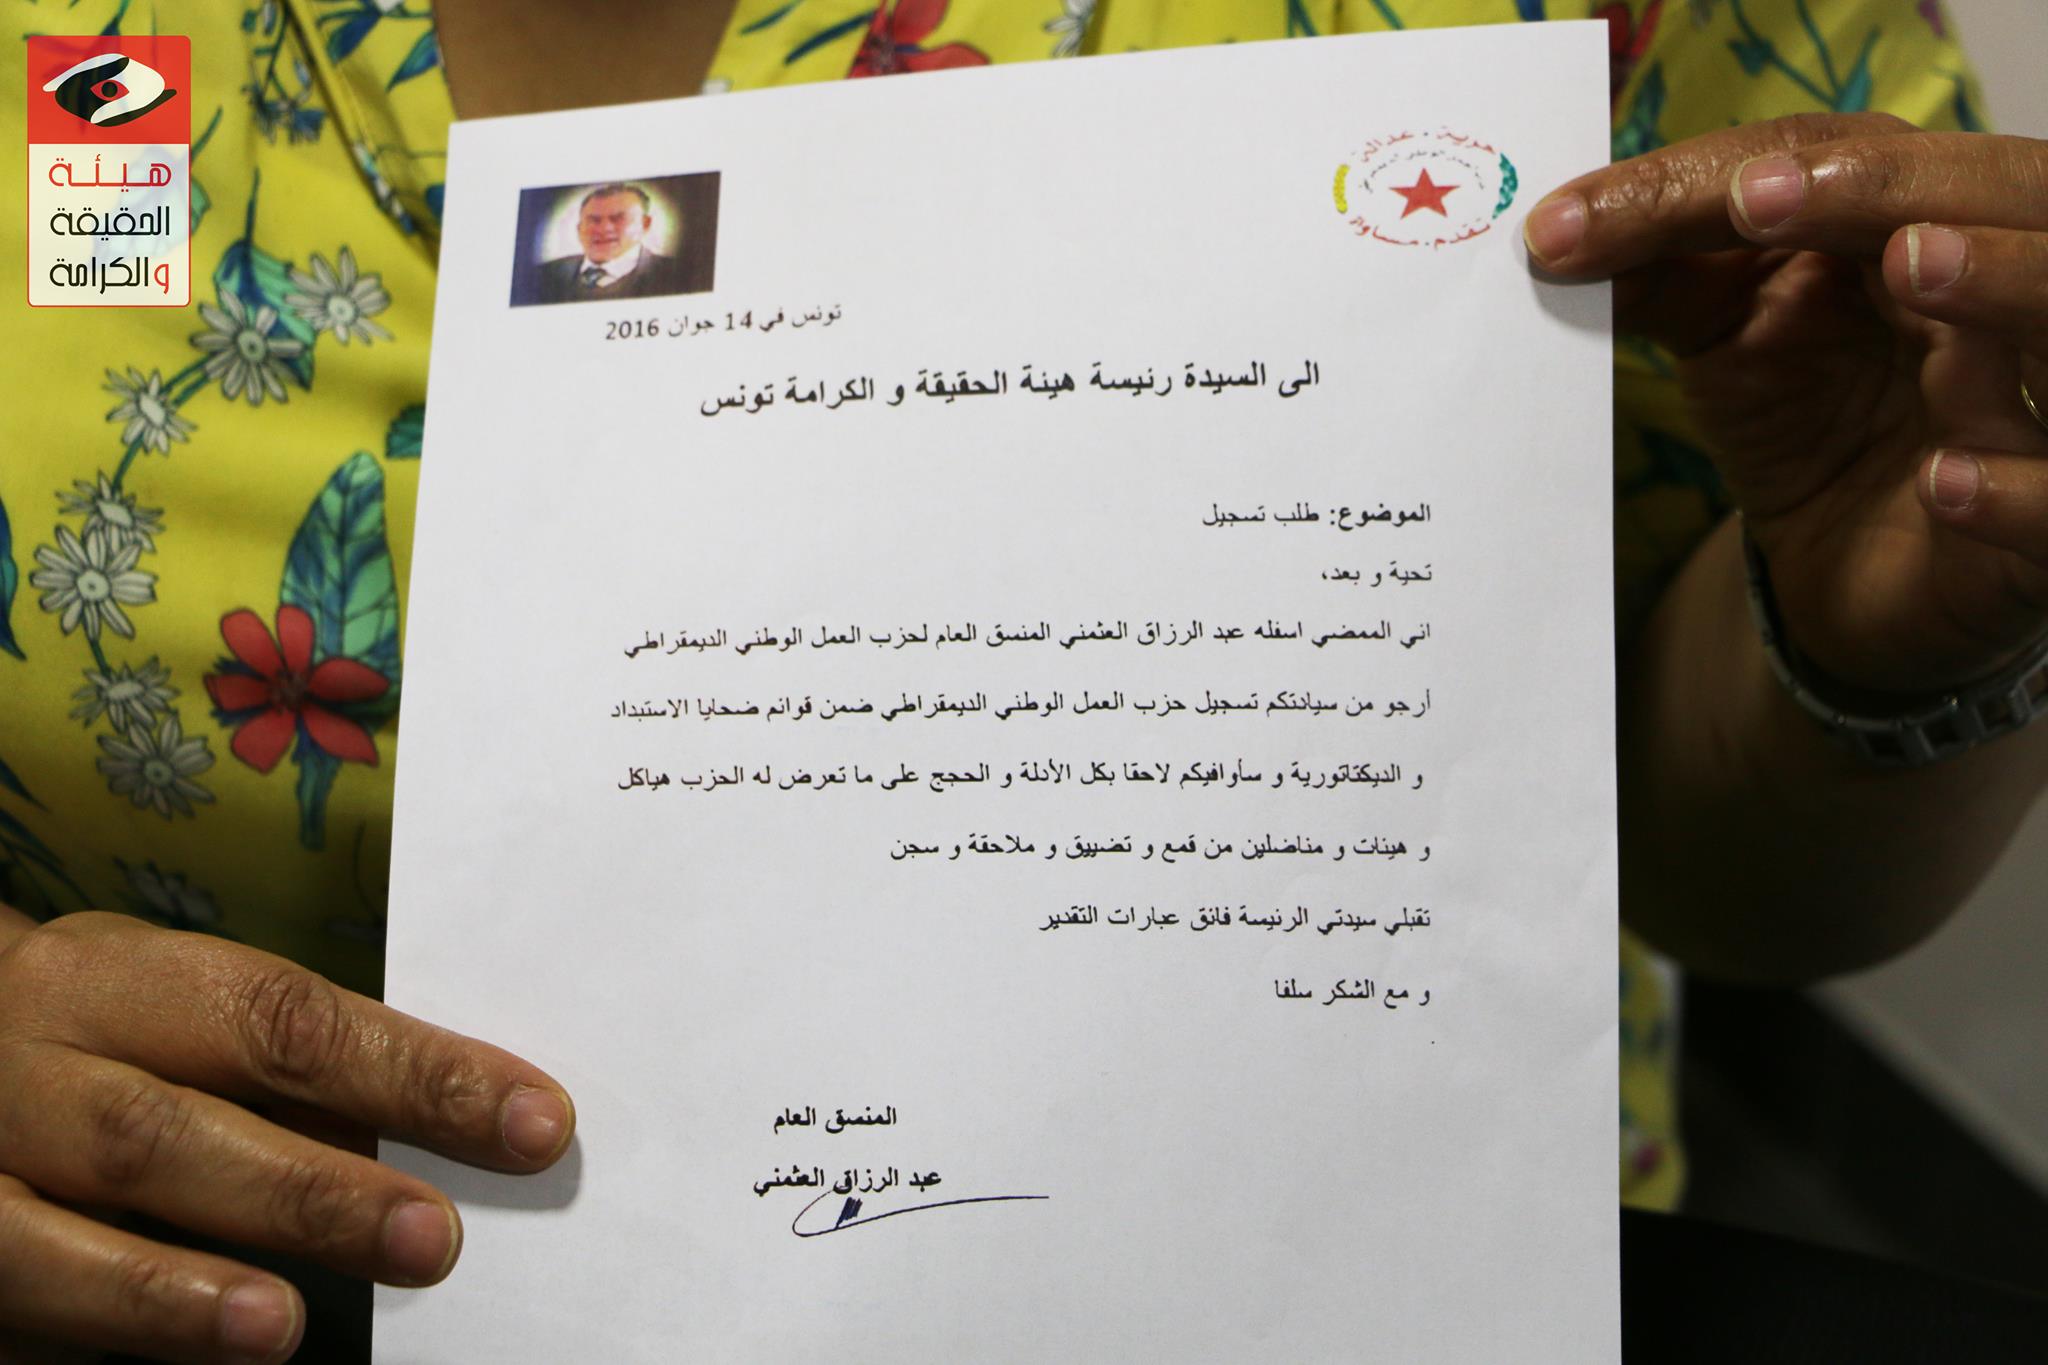 هيئة
الحقيقة
والكرامة
حرية . عدالة
تقدم . مساواة
تونس في 14 جوان 2016
الى السيدة رئيسة هيئة الحقيقة و الكرامة تونس
الموضوع: طلب تسجيل
تحية و بعد،
اني الممضي اسفله عبد الرزاق العثمني المنسق العام لحزب العمل الوطني الديمقراطي
أرجو من سيادتكم تسجيل حزب العمل الوطني الديمقراطي ضمن قوائم ضحايا الاستبداد
و الديكتاتورية و سأوافيكم لاحقا بكل الأدلة و الحجج على ما تعرض له الحزب هياكل
و هيئات و مناضلين من قمع و تضييق و ملاحقة و سجن
تقبلي سيدتي الرئيسة فائق عبارات التقدير
و مع الشكر سلفا
المنسق العام
عبد الرزاق العثمني